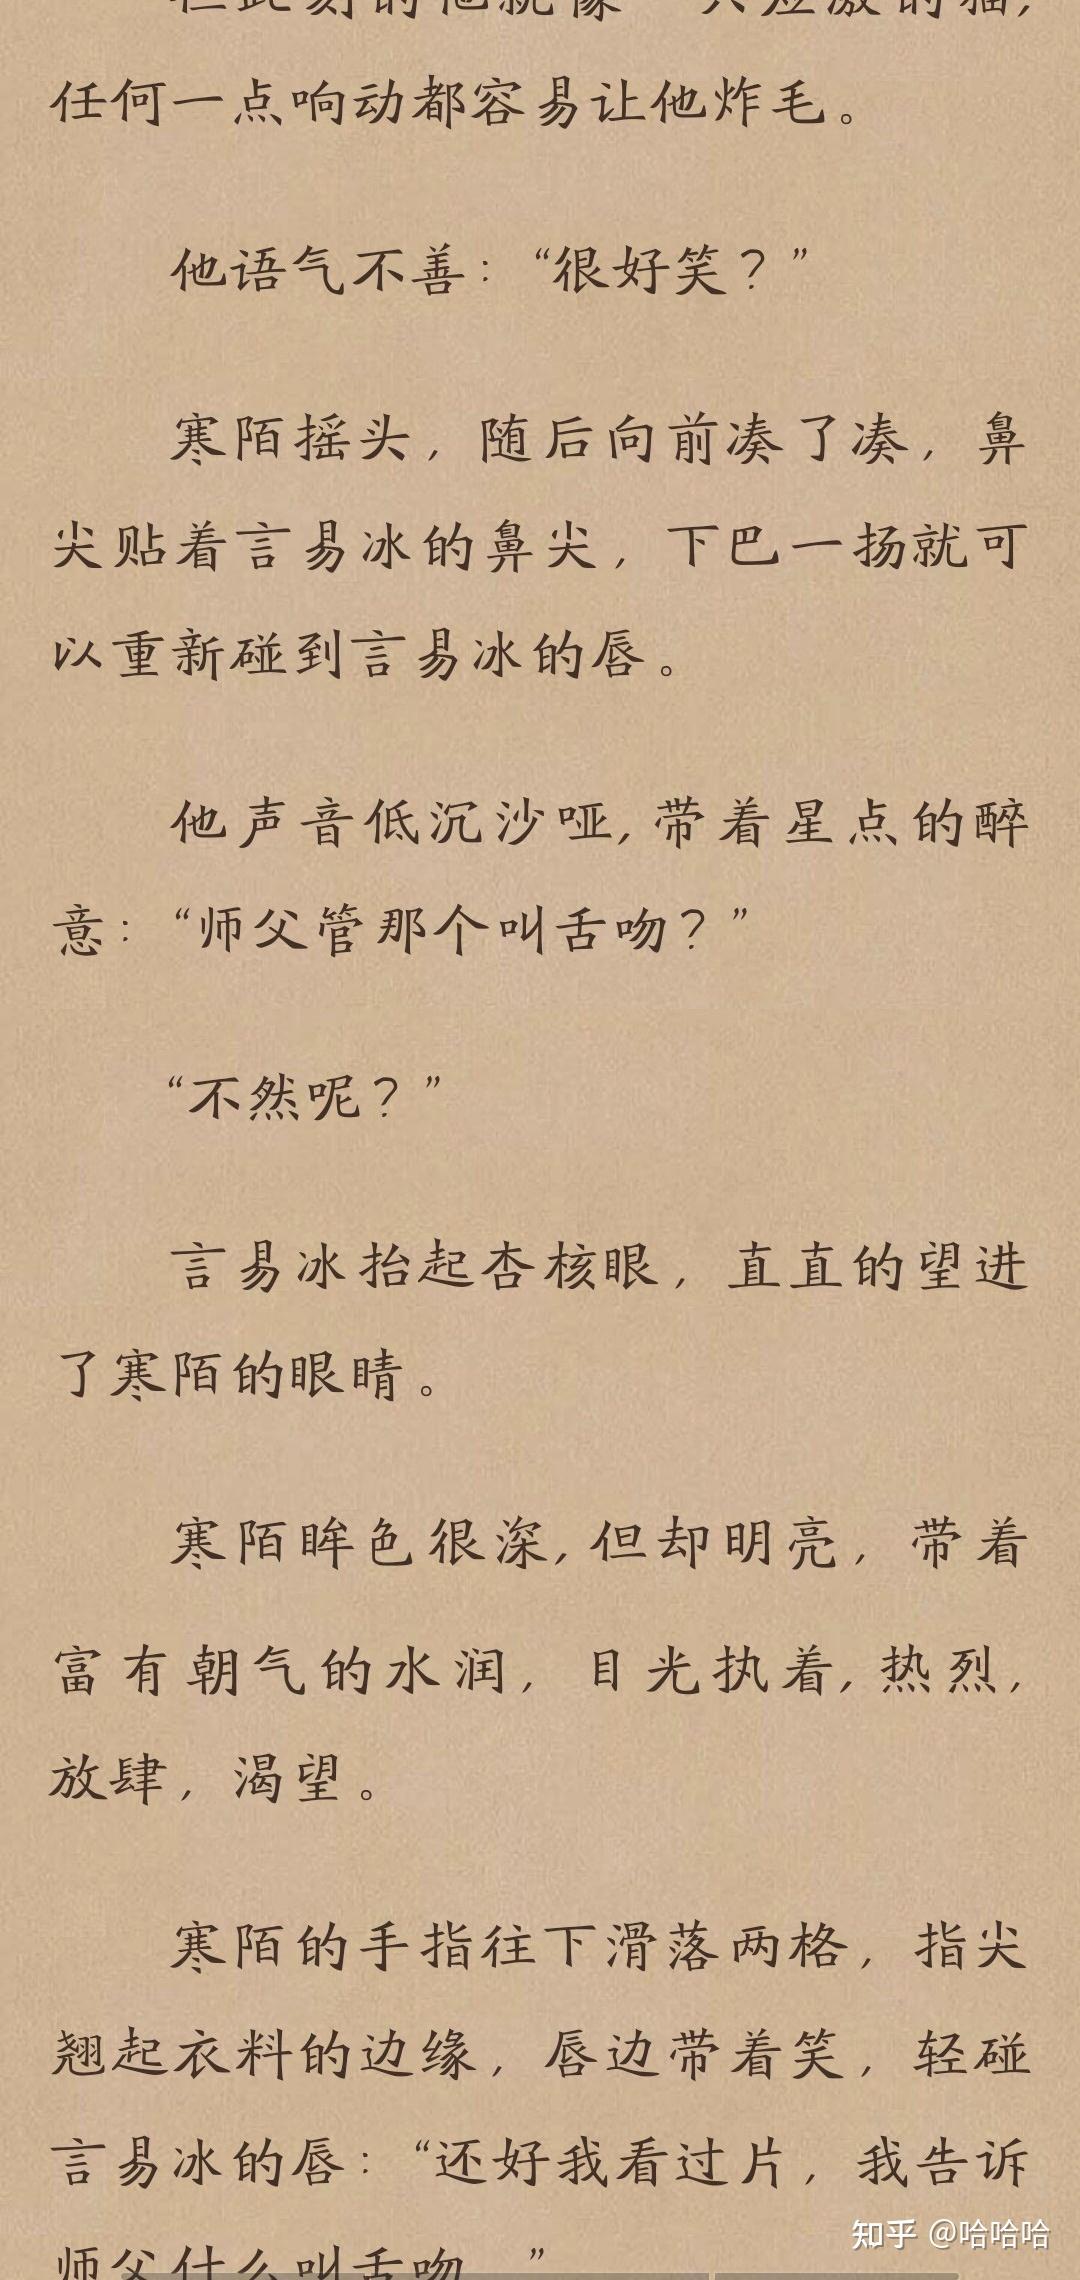 但此刻的他就像一只短激的猫,
任何一点响动都容易让他炸毛。
他语气不善：“很好笑？”
寒陌摇头，随后向前凑了凑，鼻
尖贴着言易冰的鼻尖，下巴一扬就可
以重新碰到言易冰的唇。
他声音低沉沙哑,带着星点的醉
意：“师父管那个叫舌吻？”
“不然呢？”
言易冰抬起杏核眼，直直的望进
了寒陌的眼睛。
寒陌眸色很深,但却明亮，带着
富有朝气的水润，目光执着,热烈,
放肆，渴望。
寒陌的手指往下滑落两格，指尖
翘起衣料的边缘，唇边带着笑，轻碰
言易冰的唇：“还好我看过片，我告诉
师父什么叫舌吻。”
知乎 @哈哈哈